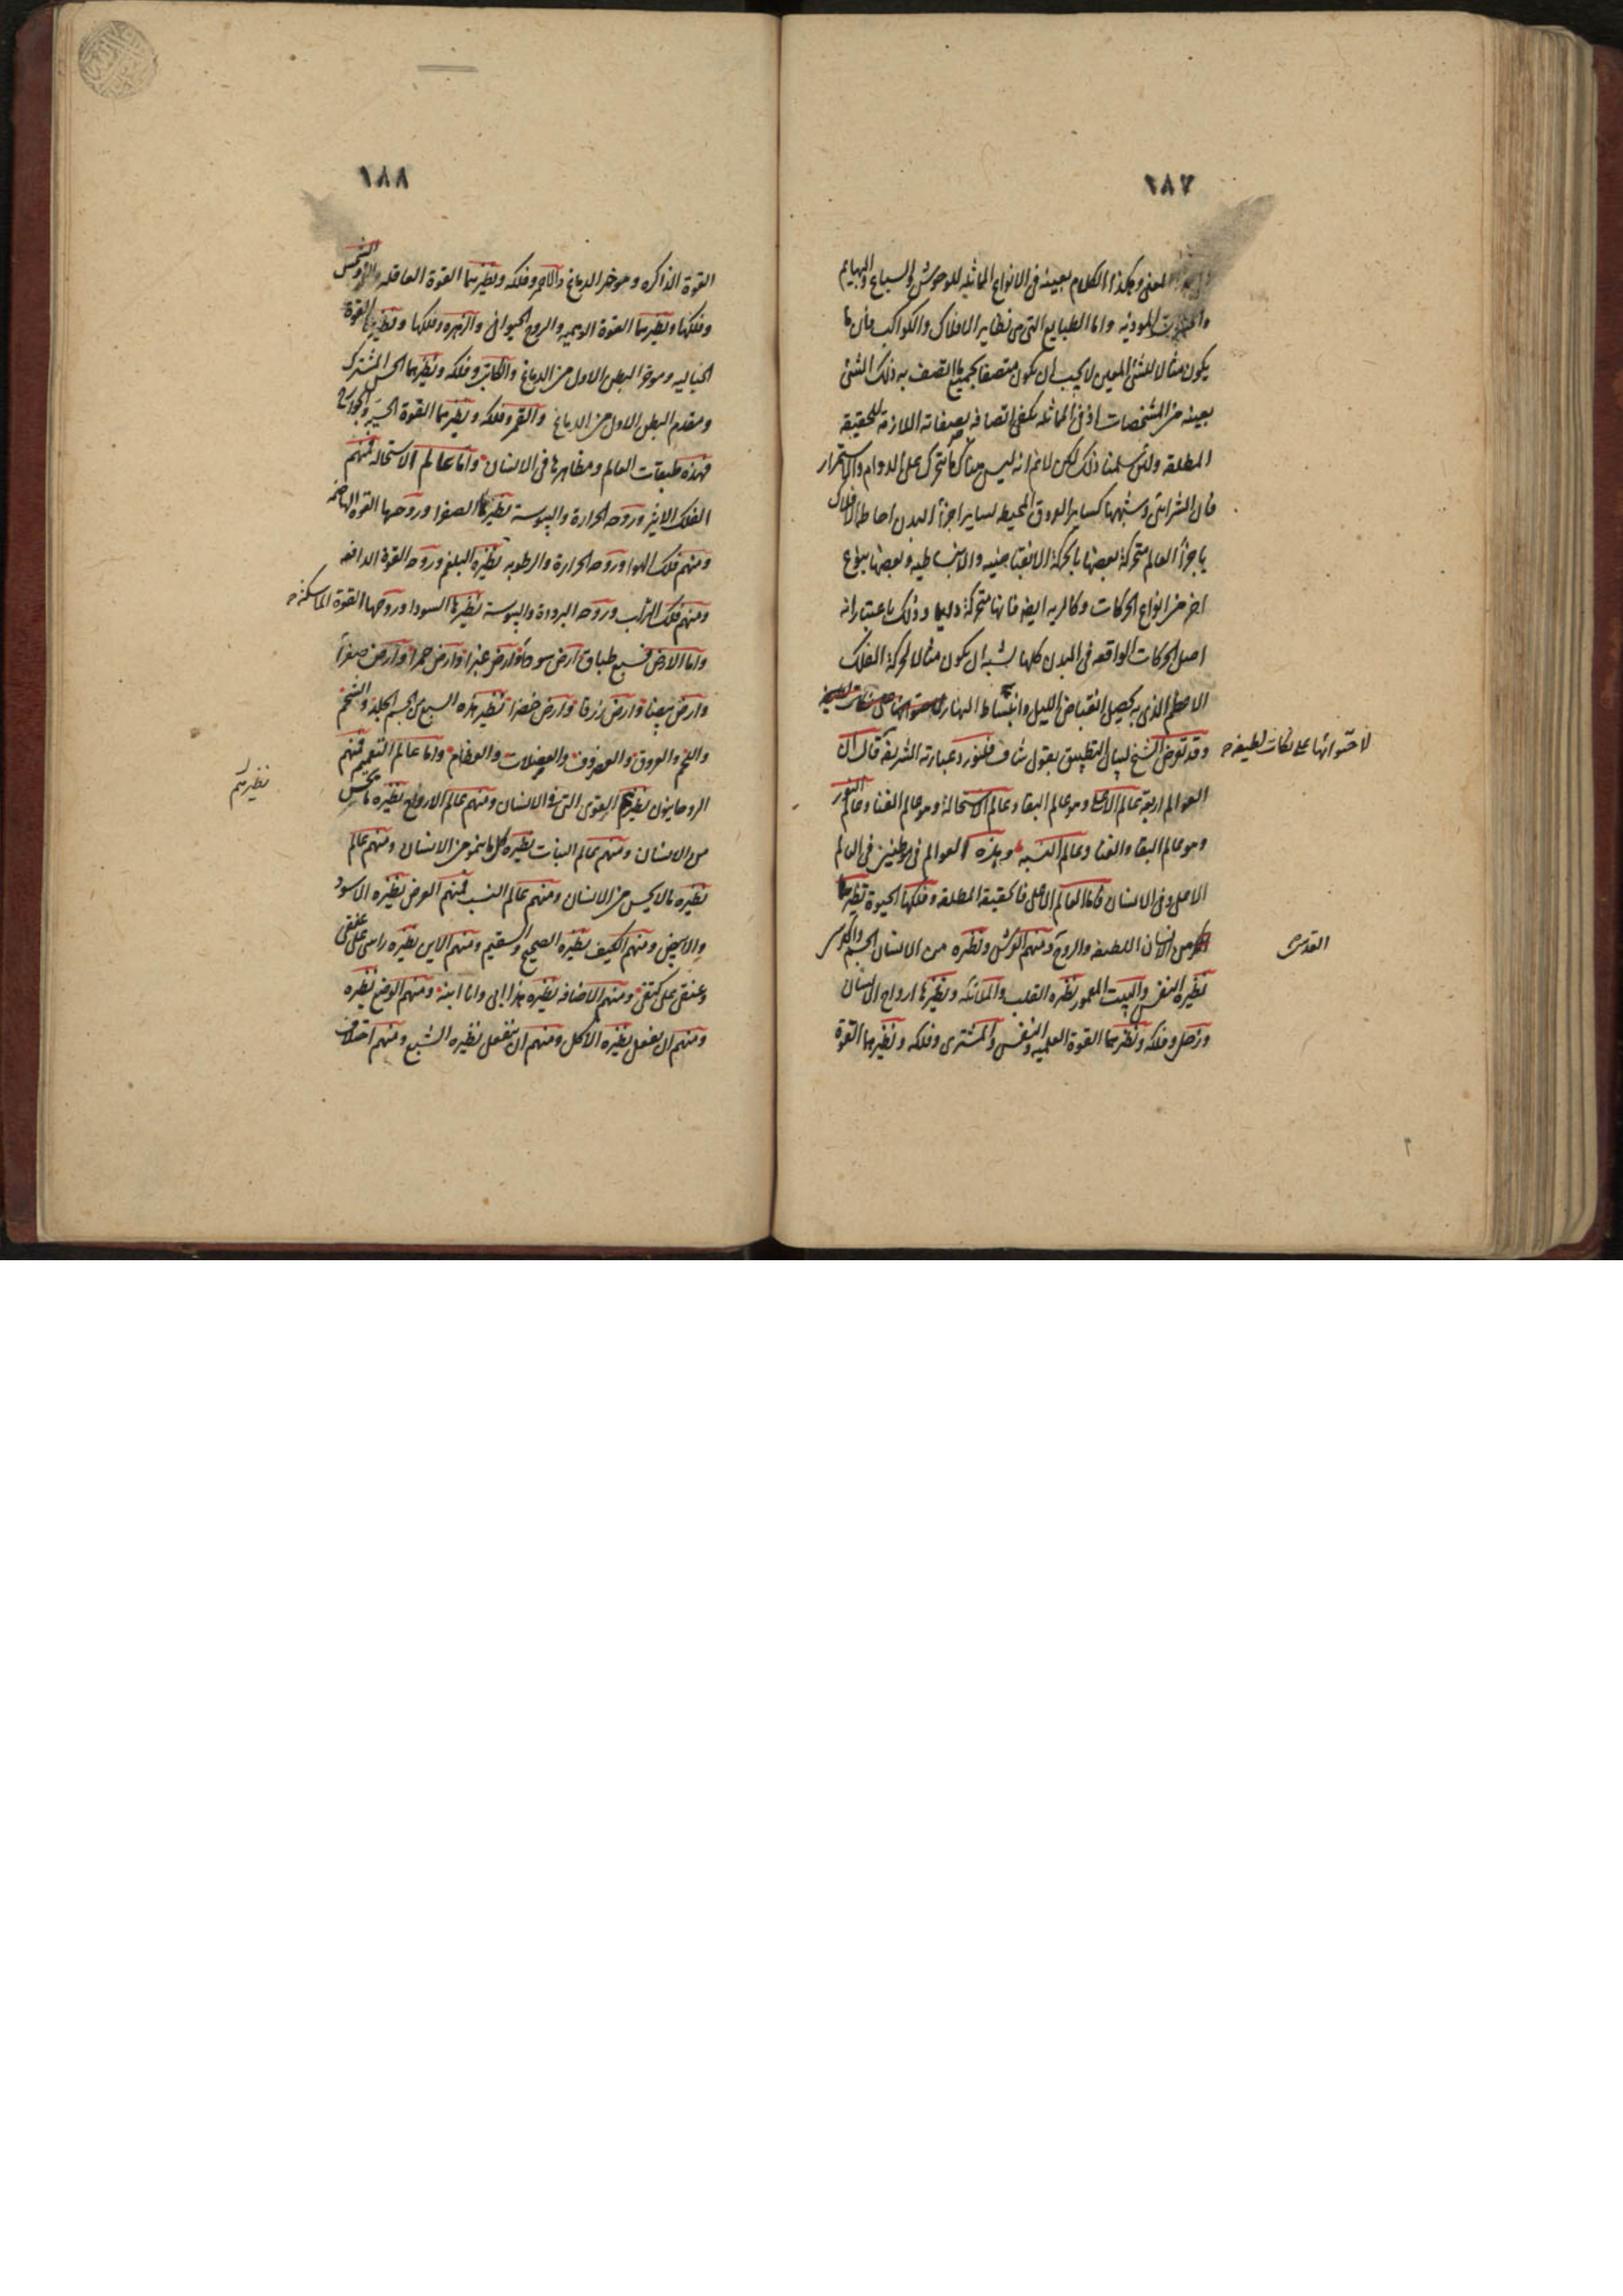 ١٨٧
المعنى وهكذا الكلام بعينه فى الانواع المماثله للوحوش والسباع والبهايم
والحشرات الموذيه واما الطبايع التى هى نظاير الافلاك والكواكب فان ما
يكون مثالا للشئ المعين لا يجب ان يكون متصفا بجميع ما اتصف به ذلك الشئ
بعينه من المشخصات اذ فى المماثله يكفى اتصافه بصفاته اللازمة للحقيقة
المطلقة ولئن سلمنا ذلك لكن لانم انه ليس هناك ما يتحرك على الدوام والاستمرار
فان الشرايين وشبهها كساير العروق المحيطه لساير اجزأ البدن احاطة الافلاك
باجزأ العالم متحركة بعضها بالحركة الانقباضيه والانبساطيه وبعضها بنوع
اخر من انواع الحركات وكالريه ايضه فانها متحركة دايما وذلك باعتبار انه
اصل الحركات الواقعه فى البدن كلها يشبه ان يكون مثالا لحركة الفلك
الاعظم الذى به يحصل انقباض الليل وانبساط النهار
وقد تعرض الشيخ لبيان التطبيق بقول شاف فلنورد عبارته الشريفه قال ان
لاحتوائها على نكات لطيفه
العوالم اربعة عالم الاعلى وهو عالم البقا وعالم الاستحالة وهو عالم الفنا وعالم التعمير
وهو عالم البقا والفنا وعالم النسبه وهذه العوالم فى موطنين فى العالم
الاعلى وفى الانسان فاما العالم الاعلى فالحقيقة المطلقة وفلكها الحيوة نظيرها
من الانسان اللطيفه والروح ومنهم العرش ونظيره من الانسان الجسم والكرسى
القدسى
نظيره النفس والبيت المعمور نظيره القلب والملائكه ونظيرها ارواح الانسان
وزحل وفلكه ونظيرهما القوة العلميه والنفس والمشترى وفلكه ونظيرهما القوة
١٨٨
القوة الذاكره وموخر الدماغ والاحمر وفلكه ونظيرهما القوة العاقله والشمس
وفلكها ونظيرهما القوة الوهميه والروح الحيوانى والزهره وفلكها ونظيرهما القوة
الخياليه وموخر البطن الاول من الدماغ والكاتب وفلكه ونظيرهما الحس المشترك
ومقدم البطن الاول من الدماغ والقمر وفلكه ونظيرهما القوة الحسيه والجوارح
فهذه طبقات العالم ومظاهرها فى الانسان واما عالم الاستحالة فمنهم
الفلك الاثير وروحه الحرارة واليبوسة نظيرها الصفرا وروحها القوة الهاضمه
ومنهم فلك الهوا وروحه الحرارة والرطوبه نظيره البلغم وروحه القوة الدافعه
ومنهم فلك التراب وروحه البرودة واليبوسة نظيرها السودا وروحها القوة الماسكه
واما الارض فسبع طباق ارض سودأ وارض غبرا وارض حمرا وارض صفرأ
وارض بيضا وارض زرقا وارض خضرا نظير هذه السبع من الجسم الجلد والشحم
واللحم والعروق والعصروف والعضلات والعظام واما عالم التعمير فمنهم
الروحانيون نظيرهم القوى التى فى الانسان ومنهم عالم الارواح نظيره ما يحس
نظيرهم
من الانسان ومنهم عالم النبات نظيره كل ما ينمو من الانسان ومنهم عالم
نظيره ما لا يحس من الانسان ومنهم عالم النسب فمنهم العرض نظيره الاسود
والابيض ومنهم الكيف نظيره الصحيح والسقيم ومنهم الاين نظيره راسى على عنقى
وعنقى على كتفى ومنهم الاضافه نظيره هذا ابى وانا ابنه ومنهم الوضع نظيره
ومنهم ان يفعل نظيره الاكل ومنهم ان ينفعل نظيره الشبع ومنهم اختلاف